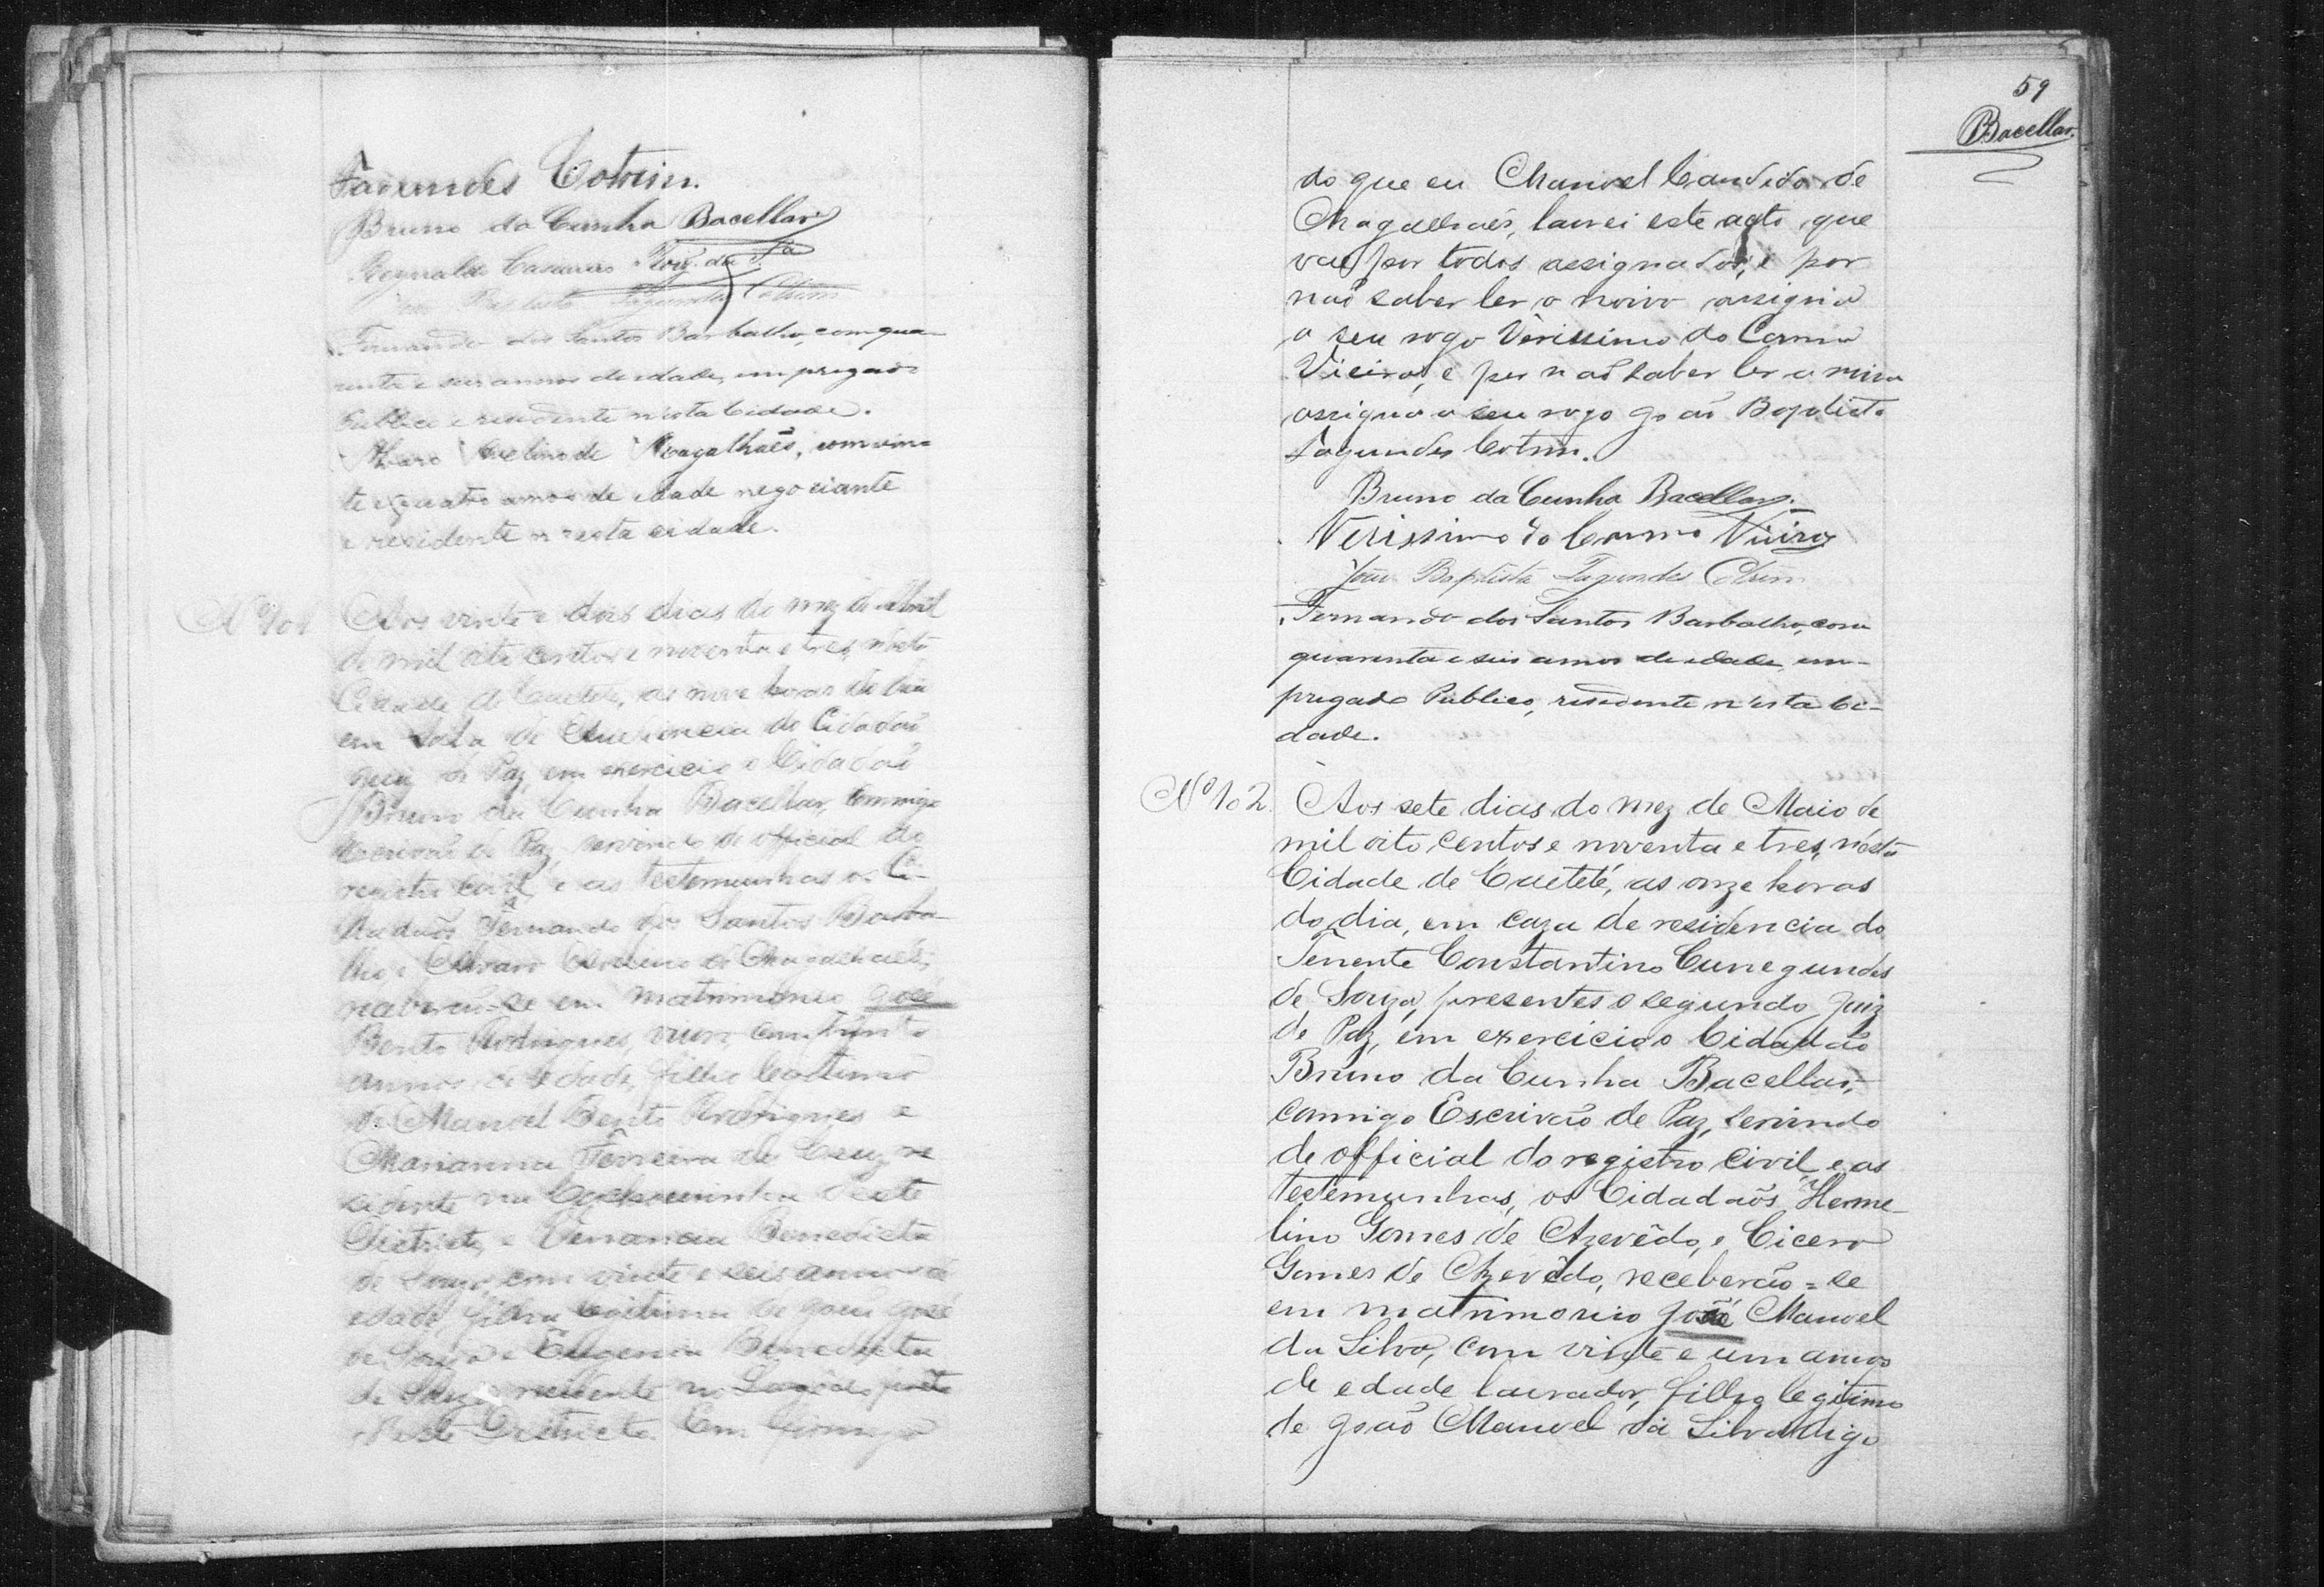 Fagundes Cotrim.
Bruno da Cunha Bacellar
João Baptista Fagundes Cotrim
Fernando dos Santos Barbalho, com qua-
renta e seis annos de edade, empregado
Publico e residente n'esta Cidade.
Alvaro Avelino de Magalhães, com vin-
te e quatro annos de edade negociante
e residente n'esta cidade.
Nº 101
Aos vinte e dois dias do mez de Abril
de mil oito centos e noventa e tres, n'esta
Cidade de Caeteté, as nove horas do dia
em Sala de Audiencia do Cidadaõ
Juiz de Paz em exercicio o Cidadaõ
Bruno da Cunha Bacellar, commigo
Escrivaõ de Paz servindo de official do
registro civil, e as testemunhas os Ci-
dadaõs Fernando dos Santos Barba-
lho, e Alvaro Avelino de Magalhaês,
receberaõ-se em matrimonio José
Bento Rodrigues, viuvo com trinta
annos de edade, filho legitimo
de Manoel Bento Rodrigues e
Marianna Ferreira da Cruz re
sidente na Cachoeirinha d'este
Districto, e Venancia Benedicta
de Souza, com vinte e seis annos de
edade, filha legitima de José
de Souza e Eugenia Benedicta
de Souza residente
d'este Districto. Em
59
Bacellar.
do que eu Manoel Candido de
Magalhaẽs, lavrei este acto, que
vai por todos assignados, e por
naõ saber ler o noivo assigna
a seu rogo Verissimo do Carmo
Vieira, e por naõ saber ler a
assigna a seu rogo Joaõ Baptista
Fagundes Cotrim.
Bruno da Cunha Bacellar.
Verissimo do Carmo Vieira
João Baptista Fagundes Cotrim
Fernando dos Santos Barbalho, com
quarenta e seis annos de edade, em-
pregado Publico, residente n'esta Ci-
dade.
Nº 102.
Aos sete dias do mez de Maio de
mil oito centos e noventa e tres, n'esta
Cidade de Caeteté, as onze horas
do dia, em caza de residencia do
Tenente Constantino Cunegundes
de Souza, presentes o segundo Juiz
de Paz, em exercicio o Cidadaõ
Bruno da Cunha Bacellar,
comigo Escrivão de Paz, servindo
de official do registro civil, e as
testemunhas, os Cidadaõs Herme-
lino Gomes de Azevêdo, e Cicero
Gomes de Azevêdo, receberão-se
em matrimonio José Manoel
da Silva, com vinte e um annos
de edade lavrador, filho legitimo
de Joaõ Manoel da Silva digo